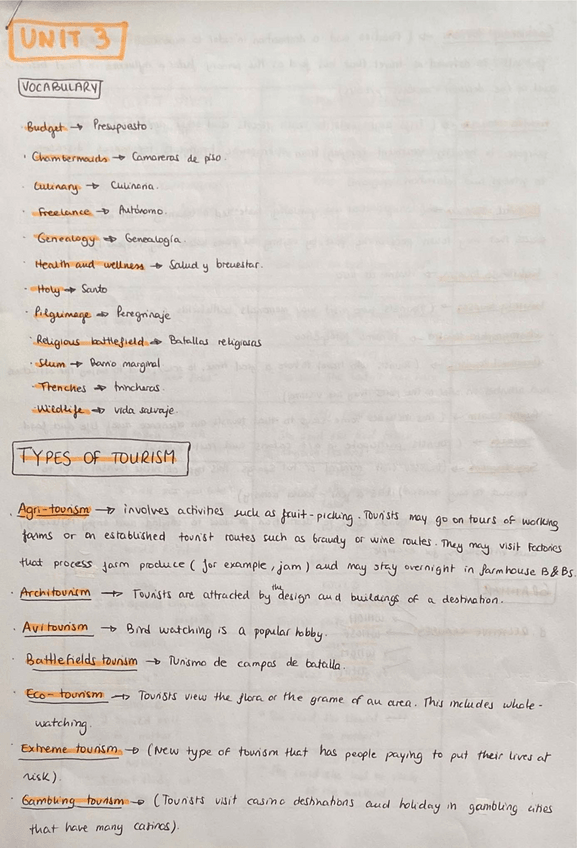 UNIT 3
VOCABULARY
· Budget → Presupuesto.
· Chambermaids → Camareras de piso.
· Culinary → Culinaria.
· Freelance → Autónomo.
· Genealogy → Genealogía.
· Health and wellness → Salud y bienestar.
· Holy → Santo
· Pilgrimage → Peregrinaje
· Religious battlefield → Batallas religiosas
· Slum → Barrio marginal
· Trenches → trincheras.
· Wildlife → vida salvaje.
TYPES OF TOURISM
· Agri-tourism → involves activities such as fruit-picking. Tourists may go on tours of working
farms or on established tourist routes such as brandy or wine routes. They may visit factories
that process farm produce (for example, jam) and may stay overnight in farmhouse B&Bs.
· Architourism → Tourists are attracted by the design and buildings of a destination.
· Avitourism → Bird watching is a popular hobby.
· Battlefields tourism → Turismo de campos de batalla.
· Eco-tourism → Tourists view the flora or the grame of an area. This includes whale-
watching.
· Extreme tourism → (New type of tourism that has people paying to put their lives at
risk).
· Gambling tourism → (Tourists visit casino destinations and holiday in gambling cities
that have many casinos).